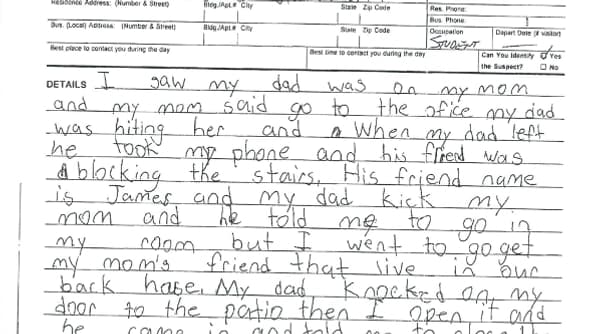 Residence Address: (Number & Street) Bldg./Apt.# City State Zip Code Res. Phone:
Bus. Phone:
Bus. (Local) Address: (Number & Street) Bldg./Apt.# City State Zip Code Occupation Depart Date (if visitor)
STUDENT
Best place to contact you during the day Best time to contact you during the day Can You Identify Yes
the Suspect? No
DETAILS I saw my dad was on my mom
and my mom said go to the ofice my dad
was hiting her and When my dad left
he took my phone and his friend was
blocking the stairs, His friend name
is James, and my dad kick my
mom and he told me to go in
my room but I went to go get
my mom's friend that live in our
back hase, My dad Knocked on my
door to the patio then I open it and
he came in and told me to